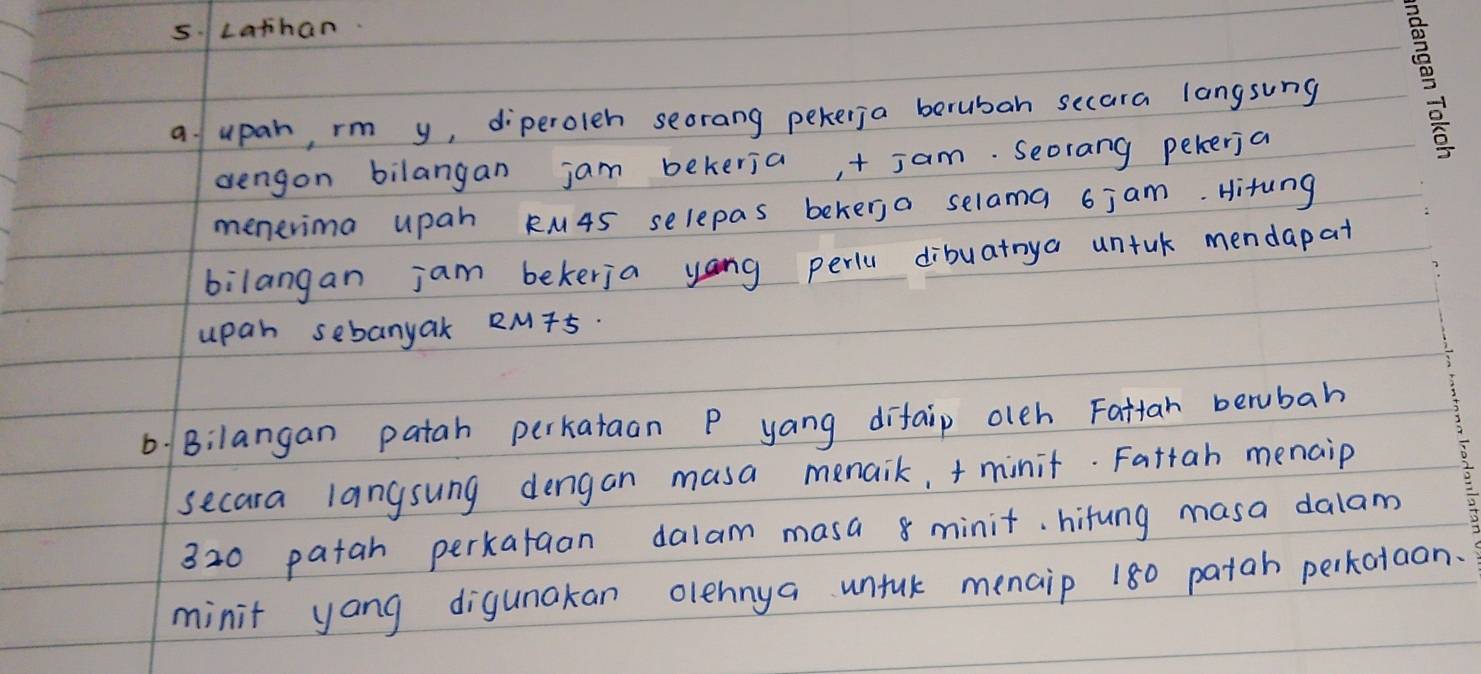 5. Latihan.
a. upah, rm y, diperoleh seorang pekerja berubah secara langsung
dengan bilangan jam bekerja, t jam. Seorang pekerja
menerima upah RM45 selepas bekerja selama 6 jam. Hitung
bilangan jam bekerja yang perlu dibuatnya untuk mendapat
upah sebanyak RM75.
b. Bilangan patah perkataan P yang ditaip oleh Fattah berubah
secara langsung dengan masa menaik, t minit. Fattah menaip
320 patah perkataan dalam masa 8 minit. hitung masa dalam
minit yang digunakan olehnya untuk menaip 180 patah perkataan.
andangan Tokoh